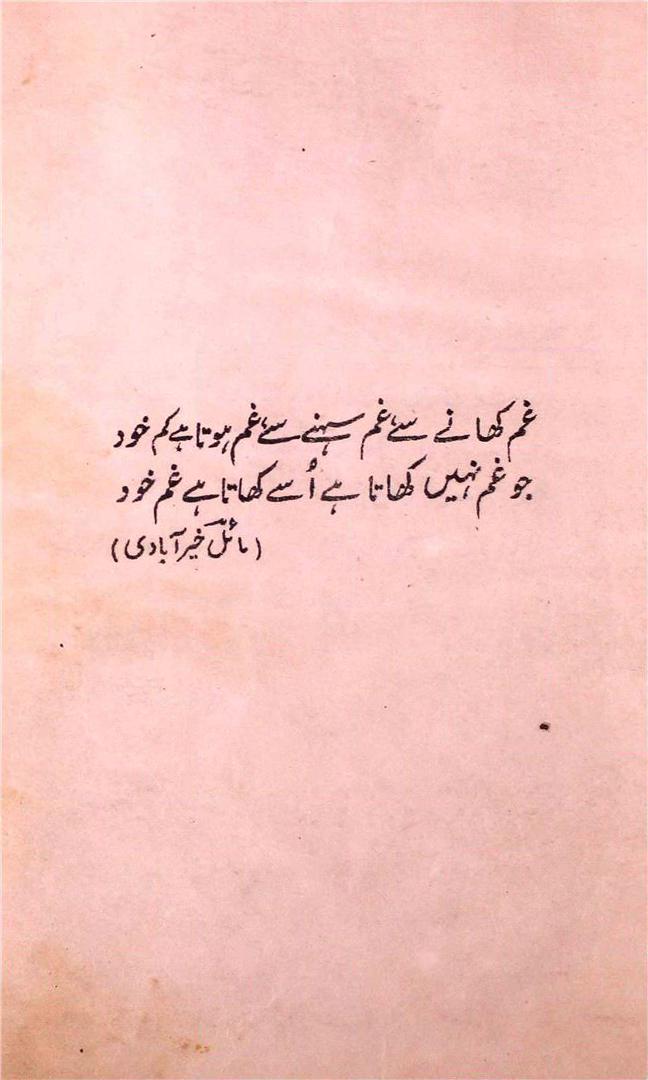 غم کھانے سے غم سہنے سے غم ہوتا ہے کم خود
جو غم نہیں کھاتا ہے اُسے کھاتا ہے غم خود
(مائلؔ خیرآبادی)